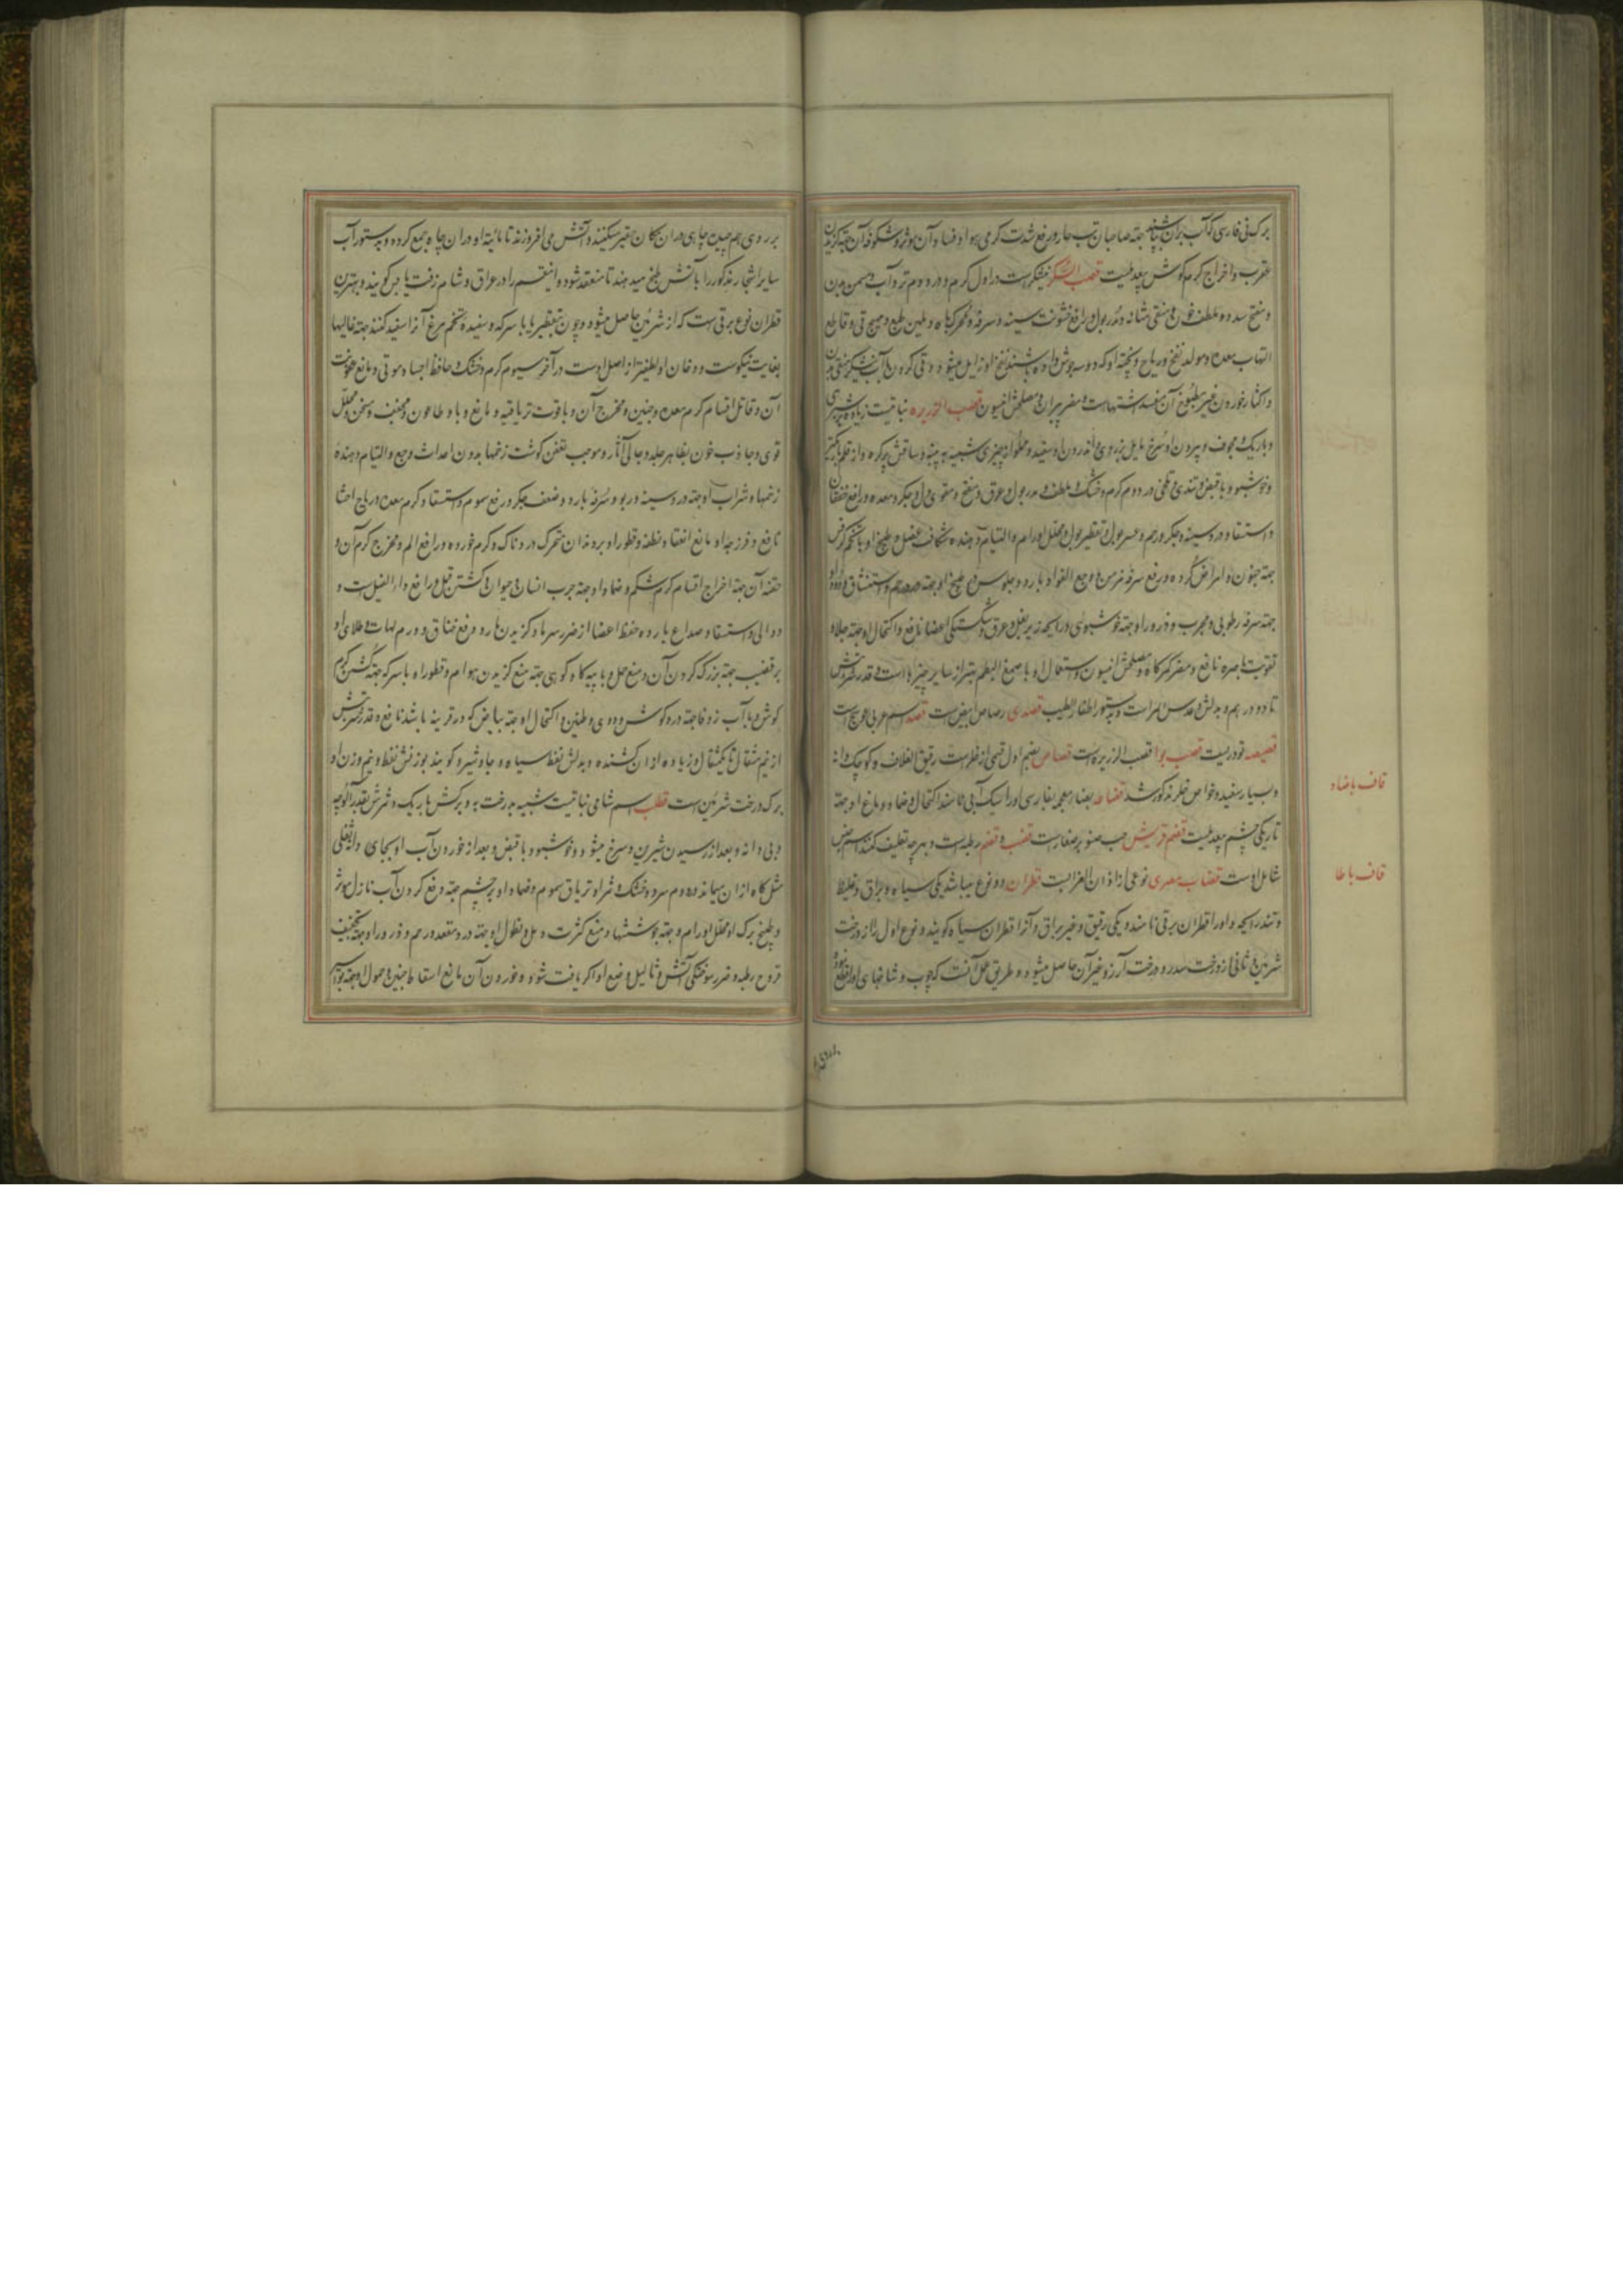 برک نی فارسی که آب بران پاشند جهة صاحبان تب حار و رفع شدت کرمی هوا و فساد آن موثر و شکوفه آن جهة کزیدن
عقرب و اخراج کرم کوش بیعدیلست قصب السکر نیشکرست در اول کرم و در دوم تر و آب مسمن بدن
و مفتح سدده و ملطف خون و منقی مثانه و مدر بول و رافع خشونت سینه و سرفه و محرک باه و ملین طبع و مهیج قی و قاطع
التهاب معده و مولد نفخ و ریاح و پخته او که دو سه جوش داده باشند نفخ او زایل میشود و قی کردن با آب نیشکر منقی بدن
و اکثار خوردن غیر مطبوخ آن مفسد اشتهاست و مضر پیران و مصلحش انیسون قصب الذریره نباتیست زیاده بر شبری
و باریک و مجوف و بیرون او سرخ مایل بزردی و اندرون او سفید و مملو از چیزی شبیه به پنبه و ساقش پرکره و از قلم باریکتر
و خوشبو و با قبض و تندی و تلخی در دوم کرم و خشک و ملطف و مدر بول و عرق و مفتح و مقوی دل و جکر و معده و رافع خفقان
و استسقا و درد سینه و جکر و رحم و عسر بول و تقطیر بول و محلل اورام و التیام دهنده شکاف عضل و طبیخ او با تخم کرفس
جهة جنون و امراض کرده و رفع سرفه مزمن و وجع الفواد بارد و جلوس در طبیخ او جهة درد رحم و استنشاق دود او
جهة سرفه رطوبی مجرب و ذرور او جهة خوشبوئی و رایحه زیر بغل و عرق و شکستکی اعضا نافع و اکتحال او جهة جلا و
تقویت باصره نافع و مضر کمرکاه و مصلحش انیسون و استعمال او با صمغ البطم بهتر از سایر چیزها است و قدر شربتش
تا دو درهم و بدلش عدس المراست و بدستور اظفار الطیب قصدی رصاص ابیض است قصد اسم عربی عوسج است
قصیصه تودریست قصب بوا قصب الذریره است قصاص بضم اول قسمی از خلرست رقیق الغلاف و کوچک دانه
و بسیار سفید و خواص خلر مذکور شد قضاعه بضاد معجمه بفارسی او را سیک آبی نامند اکتحال و ضماد دماغ او جهة
تاریکی چشم بیعدیلست قضم قریش حب صنوبر صغارست قضب و قضم رطبه است و بهر چه تعلیف کنند اسم قضب
شامل اوست قضاب مصری نوعی از اذان الغزالست قطران دو نوع میباشد یکی سیاه و براق و غلیظ
و تند رایحه و او را قطران برقی نامند و یکی رقیق و غیر براق و آنرا قطران سیاه کویند و نوع اول را از درخت
شربین و ثانی از درخت سدر و درخت آرز و غیر آن حاصل میشود و طریق عمل آنست که چوب و شاخهای او را قطع نموده
قاف با ضاد
قاف با طا
بر روی هم چیده چاهی در ان مکان حفر میکنند و آتش می افروزند تا مائیته او در ان چاه جمع کردد و بدستور آب
سایر اشجار مذکور را باتش طبخ میدهند تا منعقد شود و اینقسم را در عراق و شام زفت یابس کویند و بهترین
قطران نوع برقی است که از شربین حاصل میشود و چون بتقطیر یا با سرکه و سفیده تخم مرغ آنرا سفید کنند جهة غالیها
بغایت نیکوست و دخان او لطیفتر از اصل اوست در آخر سیوم کرم و خشک و حافظ اجساد موتی و مانع عفونت
آن و قاتل اقسام کرم معده و جنین و مخرج آن و با قوت تریاقیه و مانع وبا و طاعون و مجفف و مسخن و محلل
قوی و جاذب خون بظاهر جلد و جالی آثار و موجب تعفن کوشت زخمها بدون احداث وجع و التیام دهنده
زخمها و شراب او جهة درد سینه و ربو و سرفه بارد و ضعف جکر و رفع سموم و استسقا و کرم معده و ریاح احشا
نافع و فرزجه او مانع انعقاد نطفه و قطور او بر دندان متحرک دردناک و کرم خورده و رافع الم و مخرج کرم آن و
حقنه آن جهة اخراج اقسام کرم شکم و ضماد او جهة جرب انسان و حیوان و کشتن قمل و رافع داء الفیل است و
دوالی و استسقا و صداع بارد و حفظ اعضا از ضرر سرما و کزیدن مار و رفع خناق و ورم لهات و طلای او
بر قضیب جهة بزرک کردن آن و منع حمل و با پیه کاو کوهی جهة منع کزیدن هوام و قطور او با سرکه جهة کشتن کرم
کوش و با آب زوفا جهة درد کوش و دوی و طنین و اکتحال او جهة بیاض که در قرنیه باشد نافع و قدر شربتش
از نیم مثقال تا یکمثقال و زیاده از ان کشنده و بدلش نفط سیاه و جاوشیر و کویند بوزنش نفط و نیم وزن او
برک درخت شربین است قطلب اسم شامی نباتیست شبیه بدرخت به و برکش باریک و ثمرش بقدر آلوچه
و بی دانه و بعد از رسیدن شیرین و سرخ میشود و خوشبو و با قبض و بعد از خوردن آب او بجای و اثفلی
مثل کاه از ان میماند در دوم سرد و خشک و ثمر او تریاق سموم و ضماد او بر چشم جهة دفع کردن آب نازل موثر
و طبیخ برک او محلل اورام و جهة جوششها و منع کثرت دمل و نطول او جهة درد مقعد و رحم و ذرور او جهة تجفیف
قروح رطبه و ضرر سوختکی آتش و ثالیل وضع او اکر یافت شود و خوردن آن مانع اسقاط جنین و حمول او جهة بواسیر